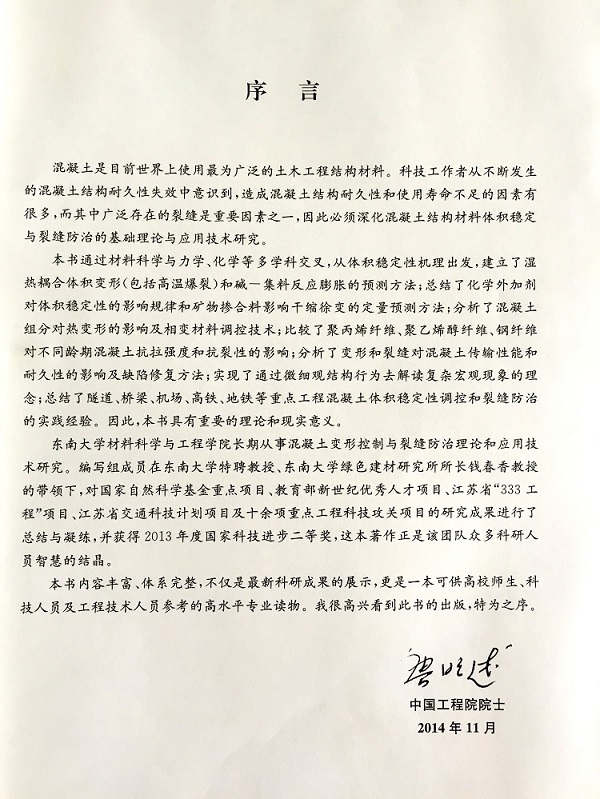 序 言
混凝土是目前世界上使用最为广泛的土木工程结构材料。科技工作者从不断发生
的混凝土结构耐久性失效中意识到,造成混凝土结构耐久性和使用寿命不足的因素有
很多,而其中广泛存在的裂缝是重要因素之一,因此必须深化混凝土结构材料体积稳定
与裂缝防治的基础理论与应用技术研究。
本书通过材料科学与力学、化学等多学科交叉,从体积稳定性机理出发,建立了湿
热耦合体积变形(包括高温爆裂)和碱—集料反应膨胀的预测方法;总结了化学外加剂
对体积稳定性的影响规律和矿物掺合料影响干缩徐变的定量预测方法;分析了混凝土
组分对热变形的影响及相变材料调控技术;比较了聚丙烯纤维、聚乙烯醇纤维、钢纤维
对不同龄期混凝土抗拉强度和抗裂性的影响;分析了变形和裂缝对混凝土传输性能和
耐久性的影响及缺陷修复方法;实现了通过微细观结构行为去解读复杂宏观现象的理
念;总结了隧道、桥梁、机场、高铁、地铁等重点工程混凝土体积稳定性调控和裂缝防治
的实践经验。因此,本书具有重要的理论和现实意义。
东南大学材料科学与工程学院长期从事混凝土变形控制与裂缝防治理论和应用技
术研究。编写组成员在东南大学特聘教授、东南大学绿色建材研究所所长钱春香教授
的带领下,对国家自然科学基金重点项目、教育部新世纪优秀人才项目、江苏省“333工
程”项目、江苏省交通科技计划项目及十余项重点工程科技攻关项目的研究成果进行了
总结与凝练,并获得2013年度国家科技进步二等奖,这本著作正是该团队众多科研人
员智慧的结晶。
本书内容丰富、体系完整,不仅是最新科研成果的展示,更是一本可供高校师生、科
技人员及工程技术人员参考的高水平专业读物。我很高兴看到此书的出版,特为之序。
中国工程院院士
2014年11月